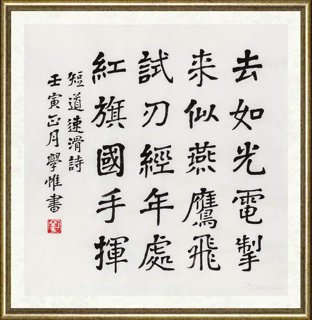 去如光電掣
来似燕鷹飛
試刃經年處
紅旗國手揮
短道速滑詩
壬寅正月學惟書